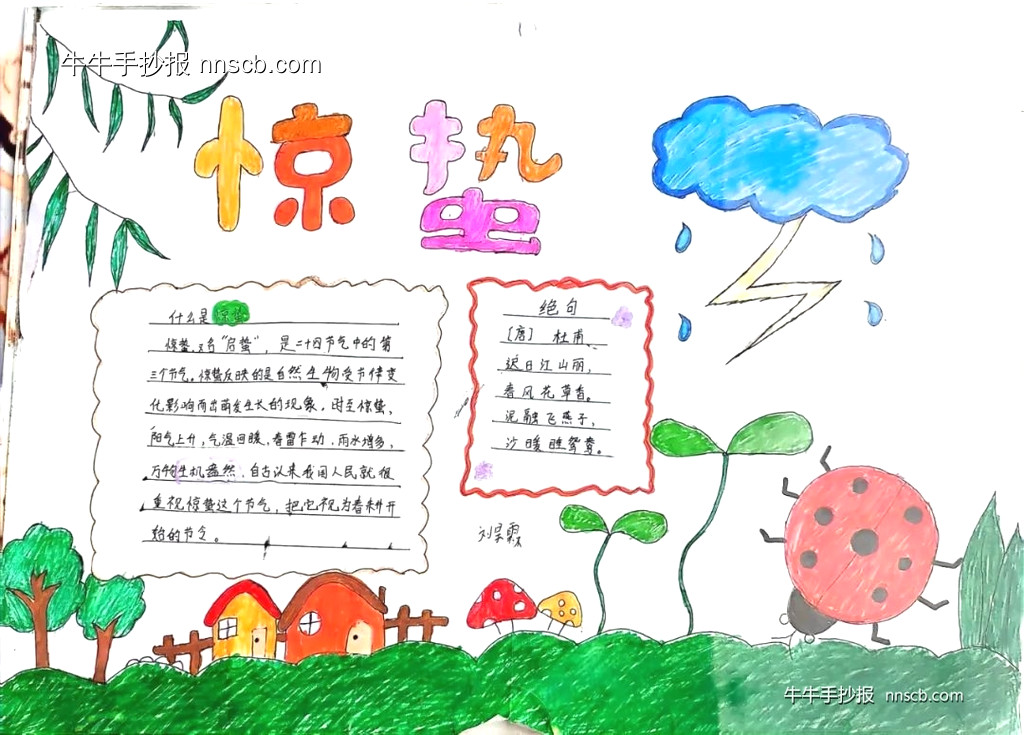 牛牛手抄报 nnscb.com
惊蛰
什么是惊蛰
惊蛰,又名“启蛰”,是二十四节气中的第
三个节气。惊蛰反映的是自然生物受节律变
化影响而出萌发生长的现象。时至惊蛰,
阳气上升,气温回暖,春雷乍动,雨水增多,
万物生机盎然,自古以来我国人民就很
重视惊蛰这个节气,把它视为春耕开
始的节令。
绝句
[唐] 杜甫
迟日江山丽,
春风花草香。
泥融飞燕子,
沙暖睡鸳鸯。
刘昊霖
牛牛手抄报 nnscb.com